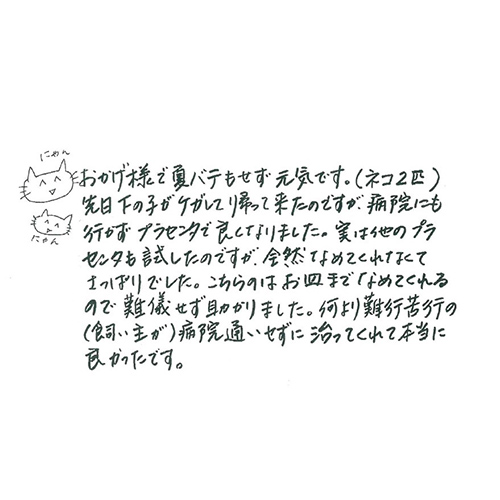 にゃん
にゃん
おかげ様で夏バテもせず元気です。(ネコ2匹)
先日下の子がケガして帰って来たのですが、病院にも
行かずプラセンタで良くなりました。実は他のプラ
センタも試したのですが、全然なめてくれなくて
さっぱりでした。こちらのはお皿までなめてくれる
ので難儀せず助かりました。何より難行苦行の
(飼い主が)病院通いせずに治ってくれて本当に
良かったです。